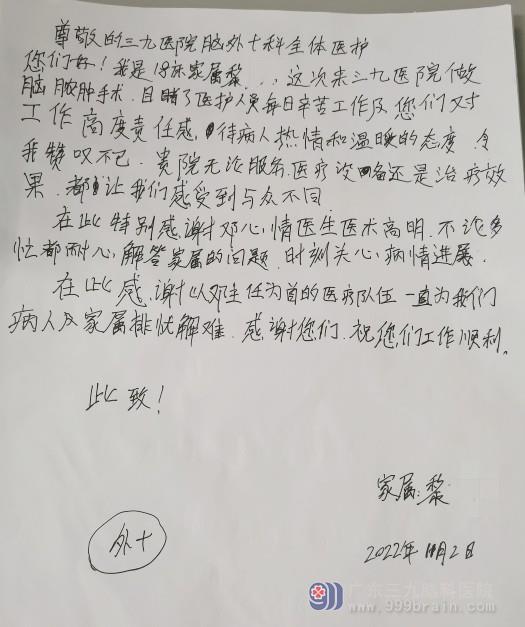 尊敬的三九医院脑外十科全体医护
您们好！我是18床家属黎..,这次来三九医院做
脑脓肿手术.目睹了医护人员每日辛苦工作及您们对
工作高度责任感,待病人热情和温暖的态度.令
我赞叹不已.贵院无论服务.医疗设备还是治疗效
果.都让我们感受到与众不同.
在此特别感谢邓心情医生医术高明.不论多
忙都耐心解答家属的问题.时刻关心病情进展.
在此感谢以邓主任为首的医疗队伍一直为我们
病人及家属排忧解难.感谢您们.祝您们工作顺利。
此致！
家属:黎
外十
2022年11月2日
广东三九脑科医院
www.999brain.com